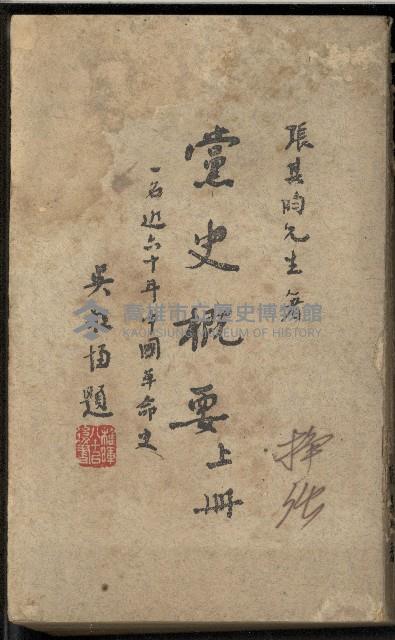 張其昀先生著
黨史概要
上冊
一名近六十年中國革命史
吳敬恆題
高雄市立歷史博物館
KAOHSIUNG MUSEUM OF HISTORY